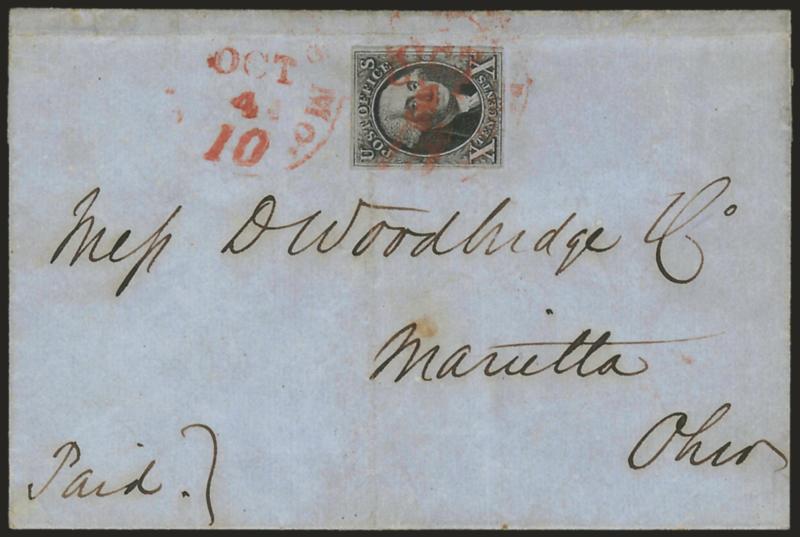 OCT
4
10
Mo.
U S
POST OFFICE
X X
TEN CENTS
Mess D Woodbridge & Co
Marietta
Ohio
Paid.